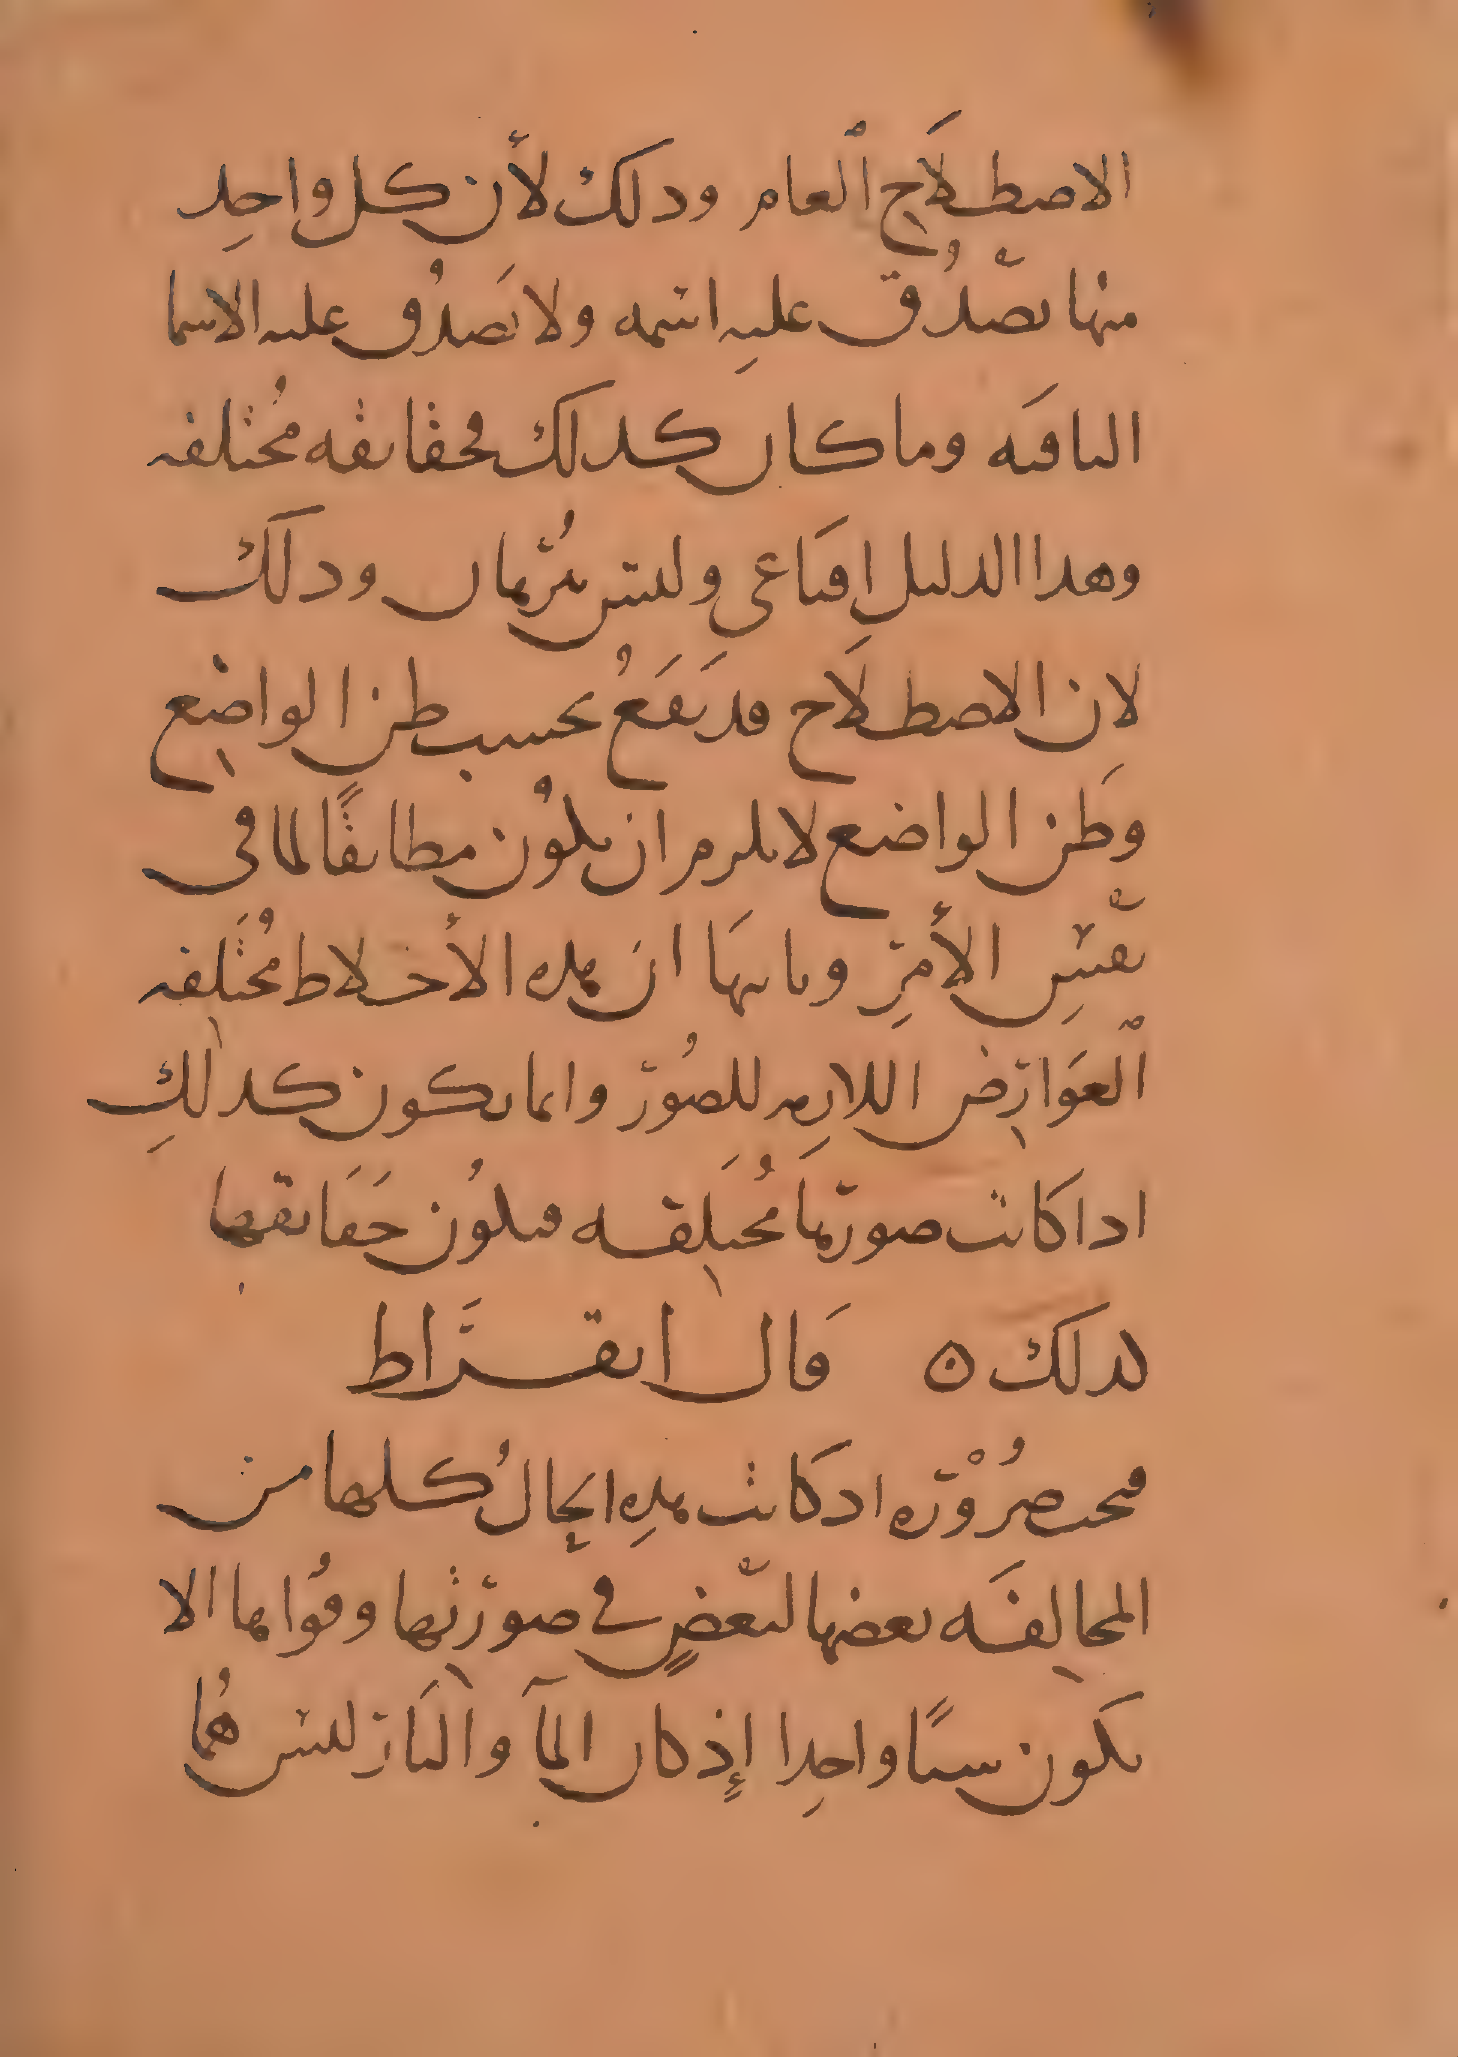 الاصطلاح العام وذلك لأن كل واحد
منها يصدُق عليه اسمه ولا يصدُق عليه الاسما
الباقيه وما كان كذلك فحقايقه مُختلفه
وهذا الدليل اقناعي وليس ببُرهان وذلك
لان الاصطلاح قد يقعُ بحسب ظن الواضع
وظن الواضع لا يلزم ان يكون مطابقًا لما في
نفس الأمر وثانيها ان هذه الأخلاط مُختلفه
العوارض اللازمه للصُور وانما يكون كذلك
اذا كانت صورها مُختلفه فيكون حقايقها
كذلك ٥ قال ابقراط
فيجب ضرُورْه اذ كانت هذه الحال كلها من
المخالفه بعضها لبعضٍ في صورتها وقُواها الا
يكون شيئًا واحدا إذ كان المآ والنار ليس هُما